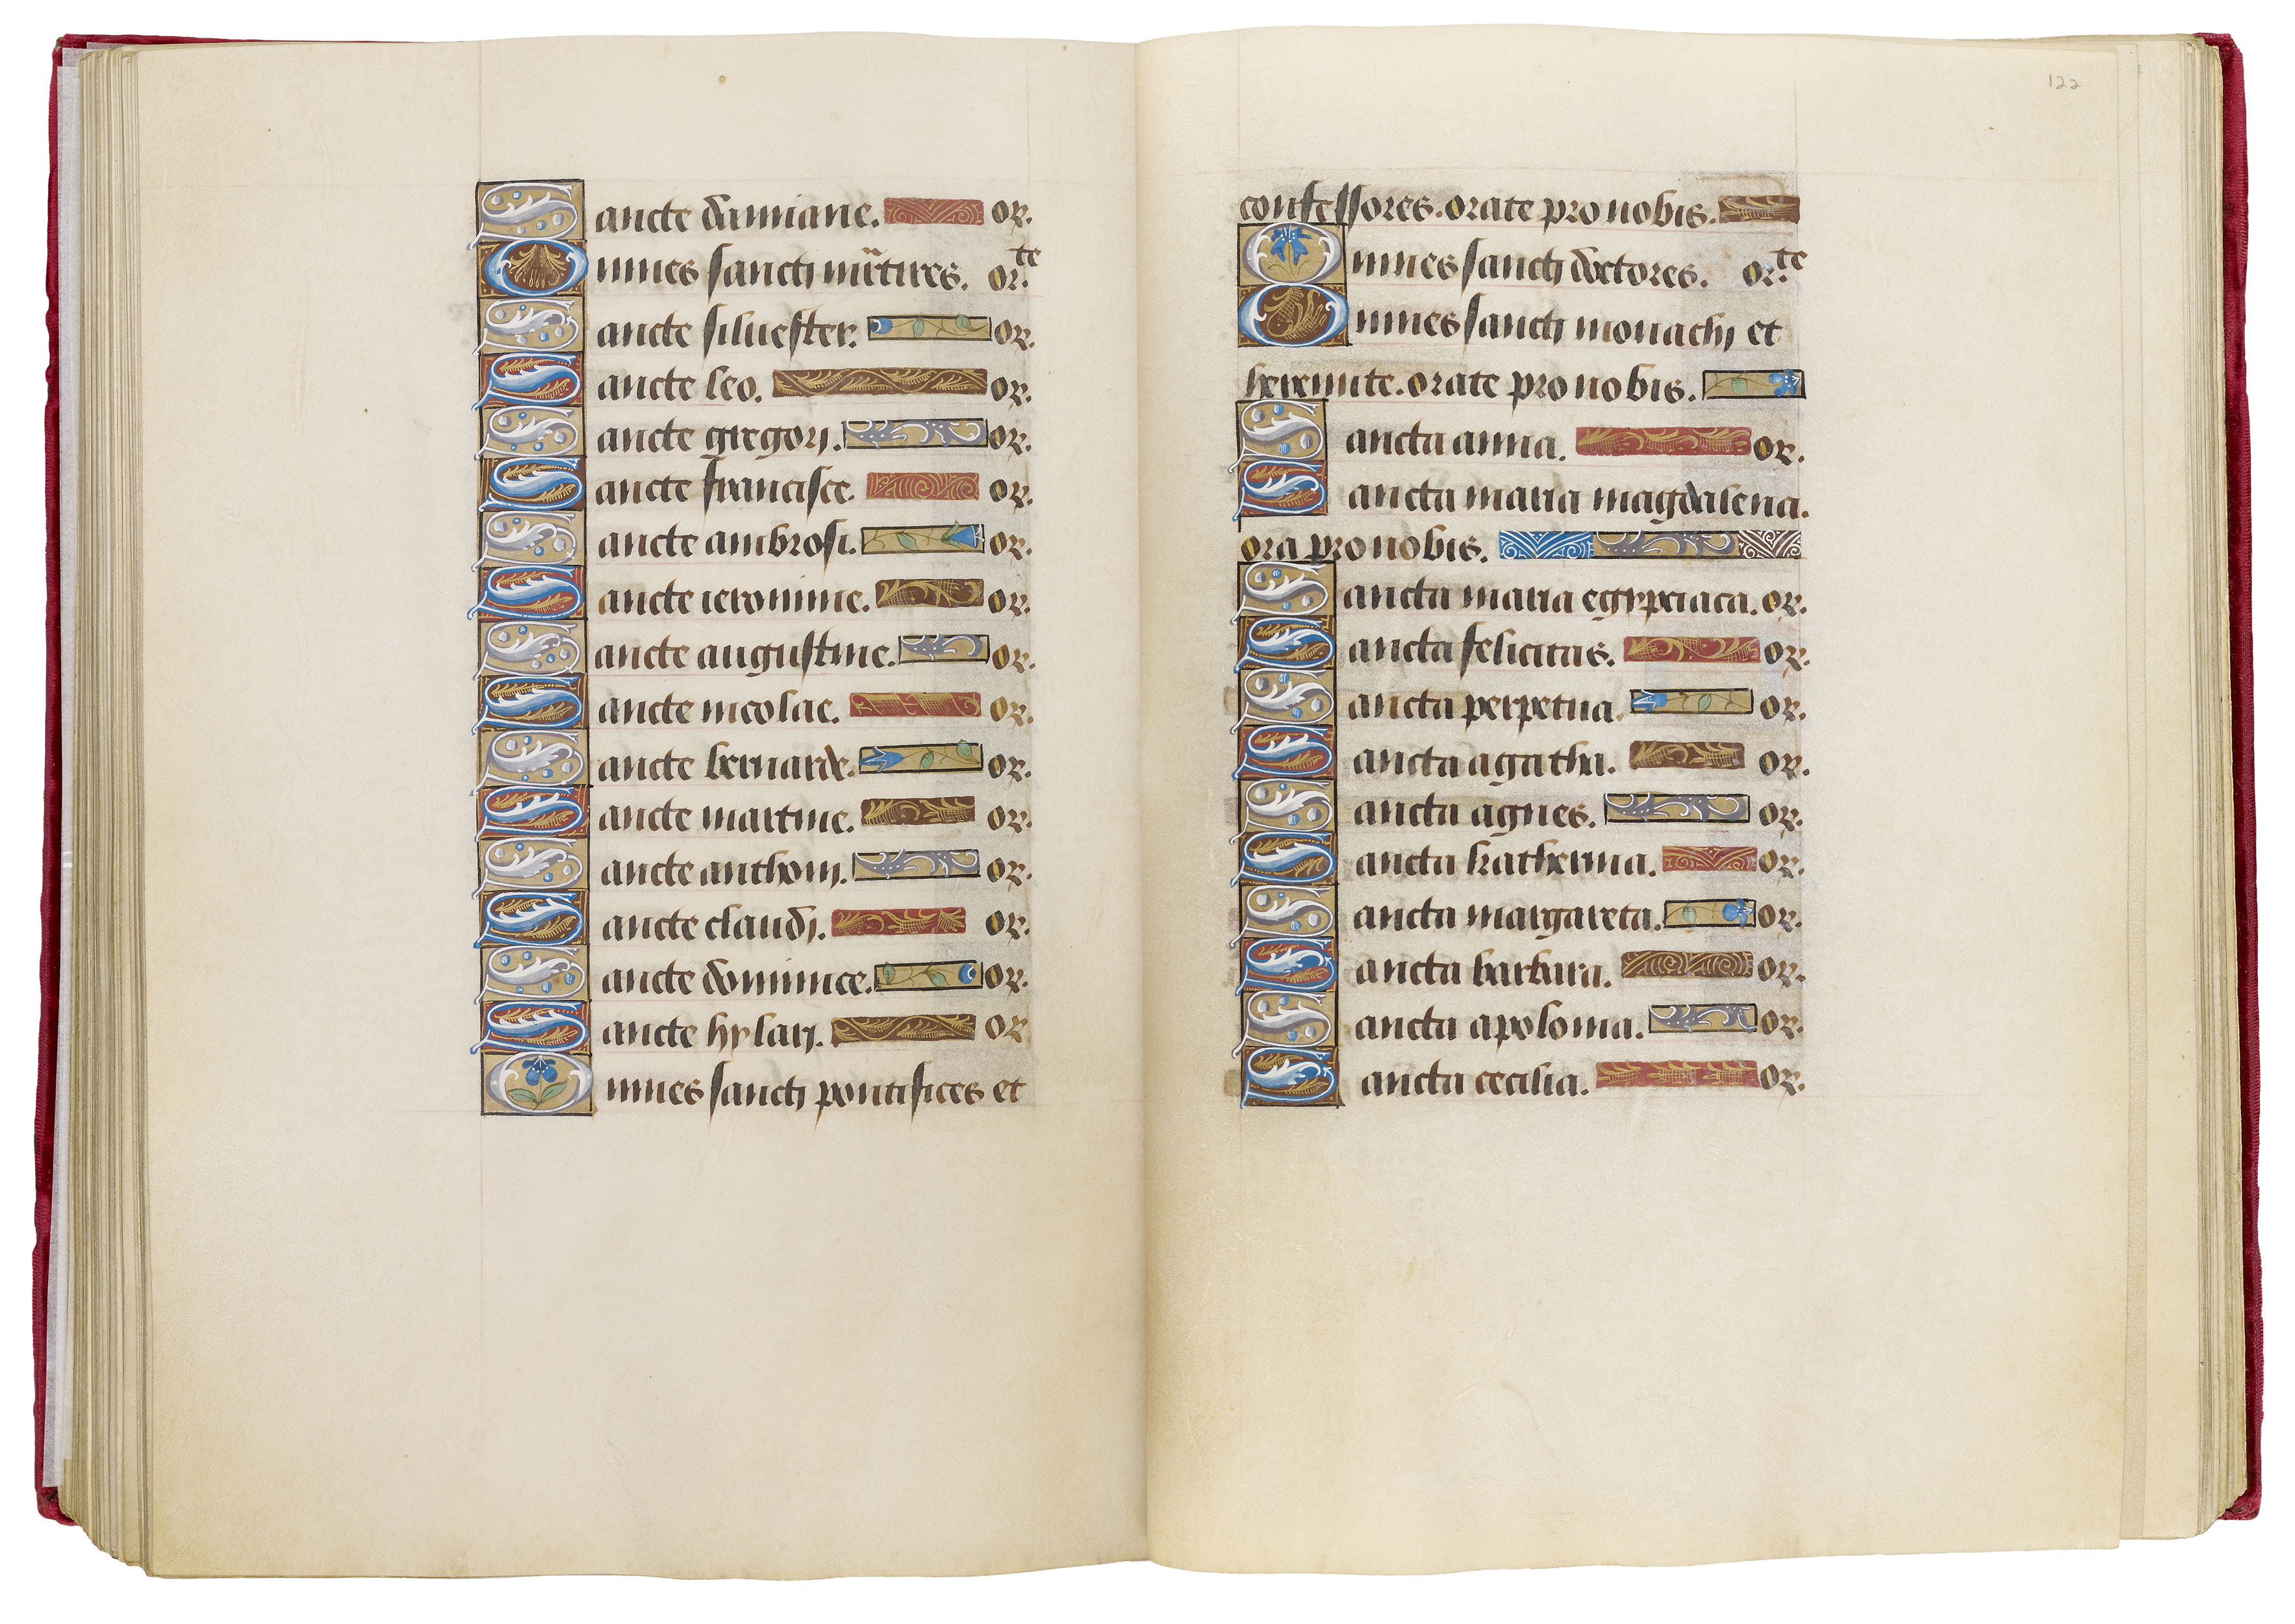 Sancte damiane. or.
Omnes sancti mr̃tires. or.te
Sancte siluester. or.
Sancte leo. or.
Sancte gregori. or.
Sancte francisce. or.
Sancte ambrosi. or.
Sancte ieronime. or.
Sancte augustine. or.
Sancte nicolae. or.
Sancte bernarde. or.
Sancte martine. or.
Sancte anthoni. or.
Sancte claudi. or.
Sancte dominice. or.
Sancte hylari. or
Omnes sancti pontifices et
122
confessores. orate pro nobis.
Omnes sancti doctores. or.te
Omnes sancti monachi et
heremite. orate pro nobis.
Sancta anna. or.
Sancta maria magdalena.
ora pro nobis.
Sancta maria egypciaca. or.
Sancta felicitas. or.
Sancta perpetua. or.
Sancta agatha. or.
Sancta agnes. or.
Sancta katherina. or.
Sancta margareta. or.
Sancta barbara. or.
Sancta apolonia. or.
Sancta cecilia. or.